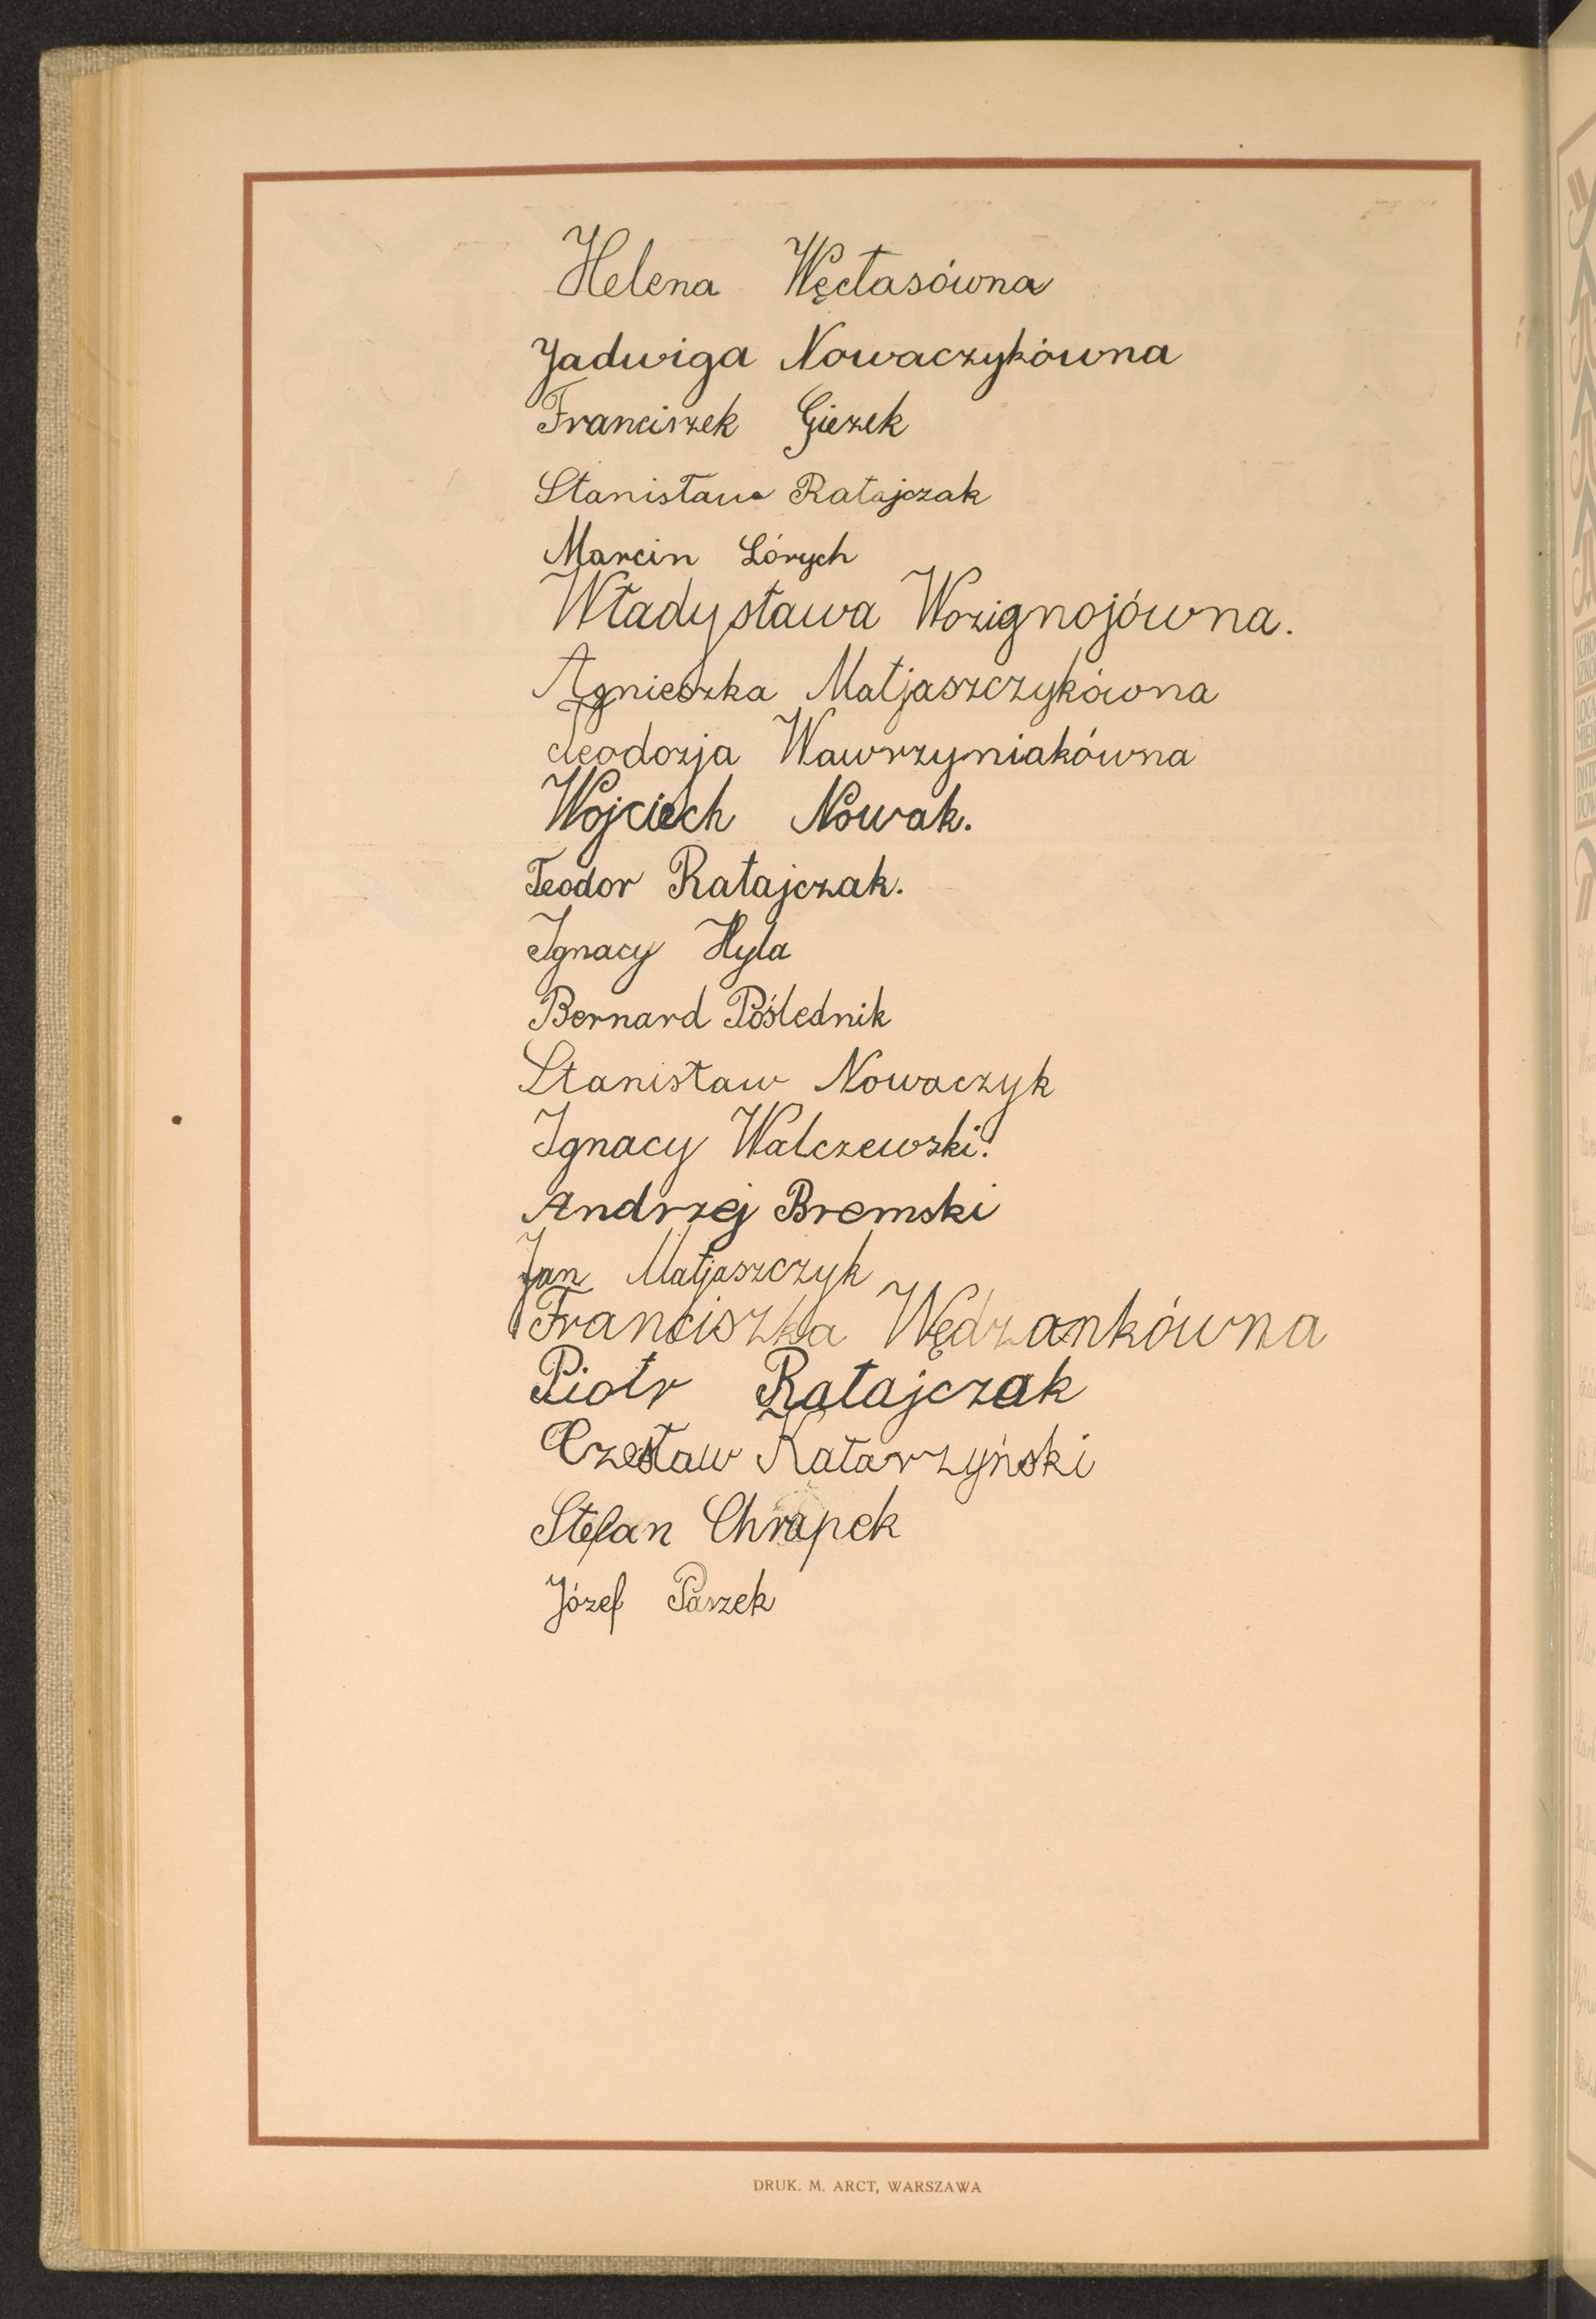 Helena Węcłasówna
Jadwiga Nowaczykówna
Franciszek Giezek
Stanisław Ratajczak
Marcin Lórych
Władysława Wozignojówna.
Agnieszka Matjaszczykówna
Teodozja Wawrzyniakówna
Wojciech Nowak.
Teodor Ratajczak.
Ignacy Hyla
Bernard Poślednik
Stanisław Nowaczyk
Ignacy Walczewski.
Andrzej Bremski
Jan Matjaszczyk
Franciszka Wędzankówna
Piotr Ratajczak
Czesław Katarzyński
Stefan Chrapek
Józef Paszek
DRUK. M. ARCT, WARSZAWA